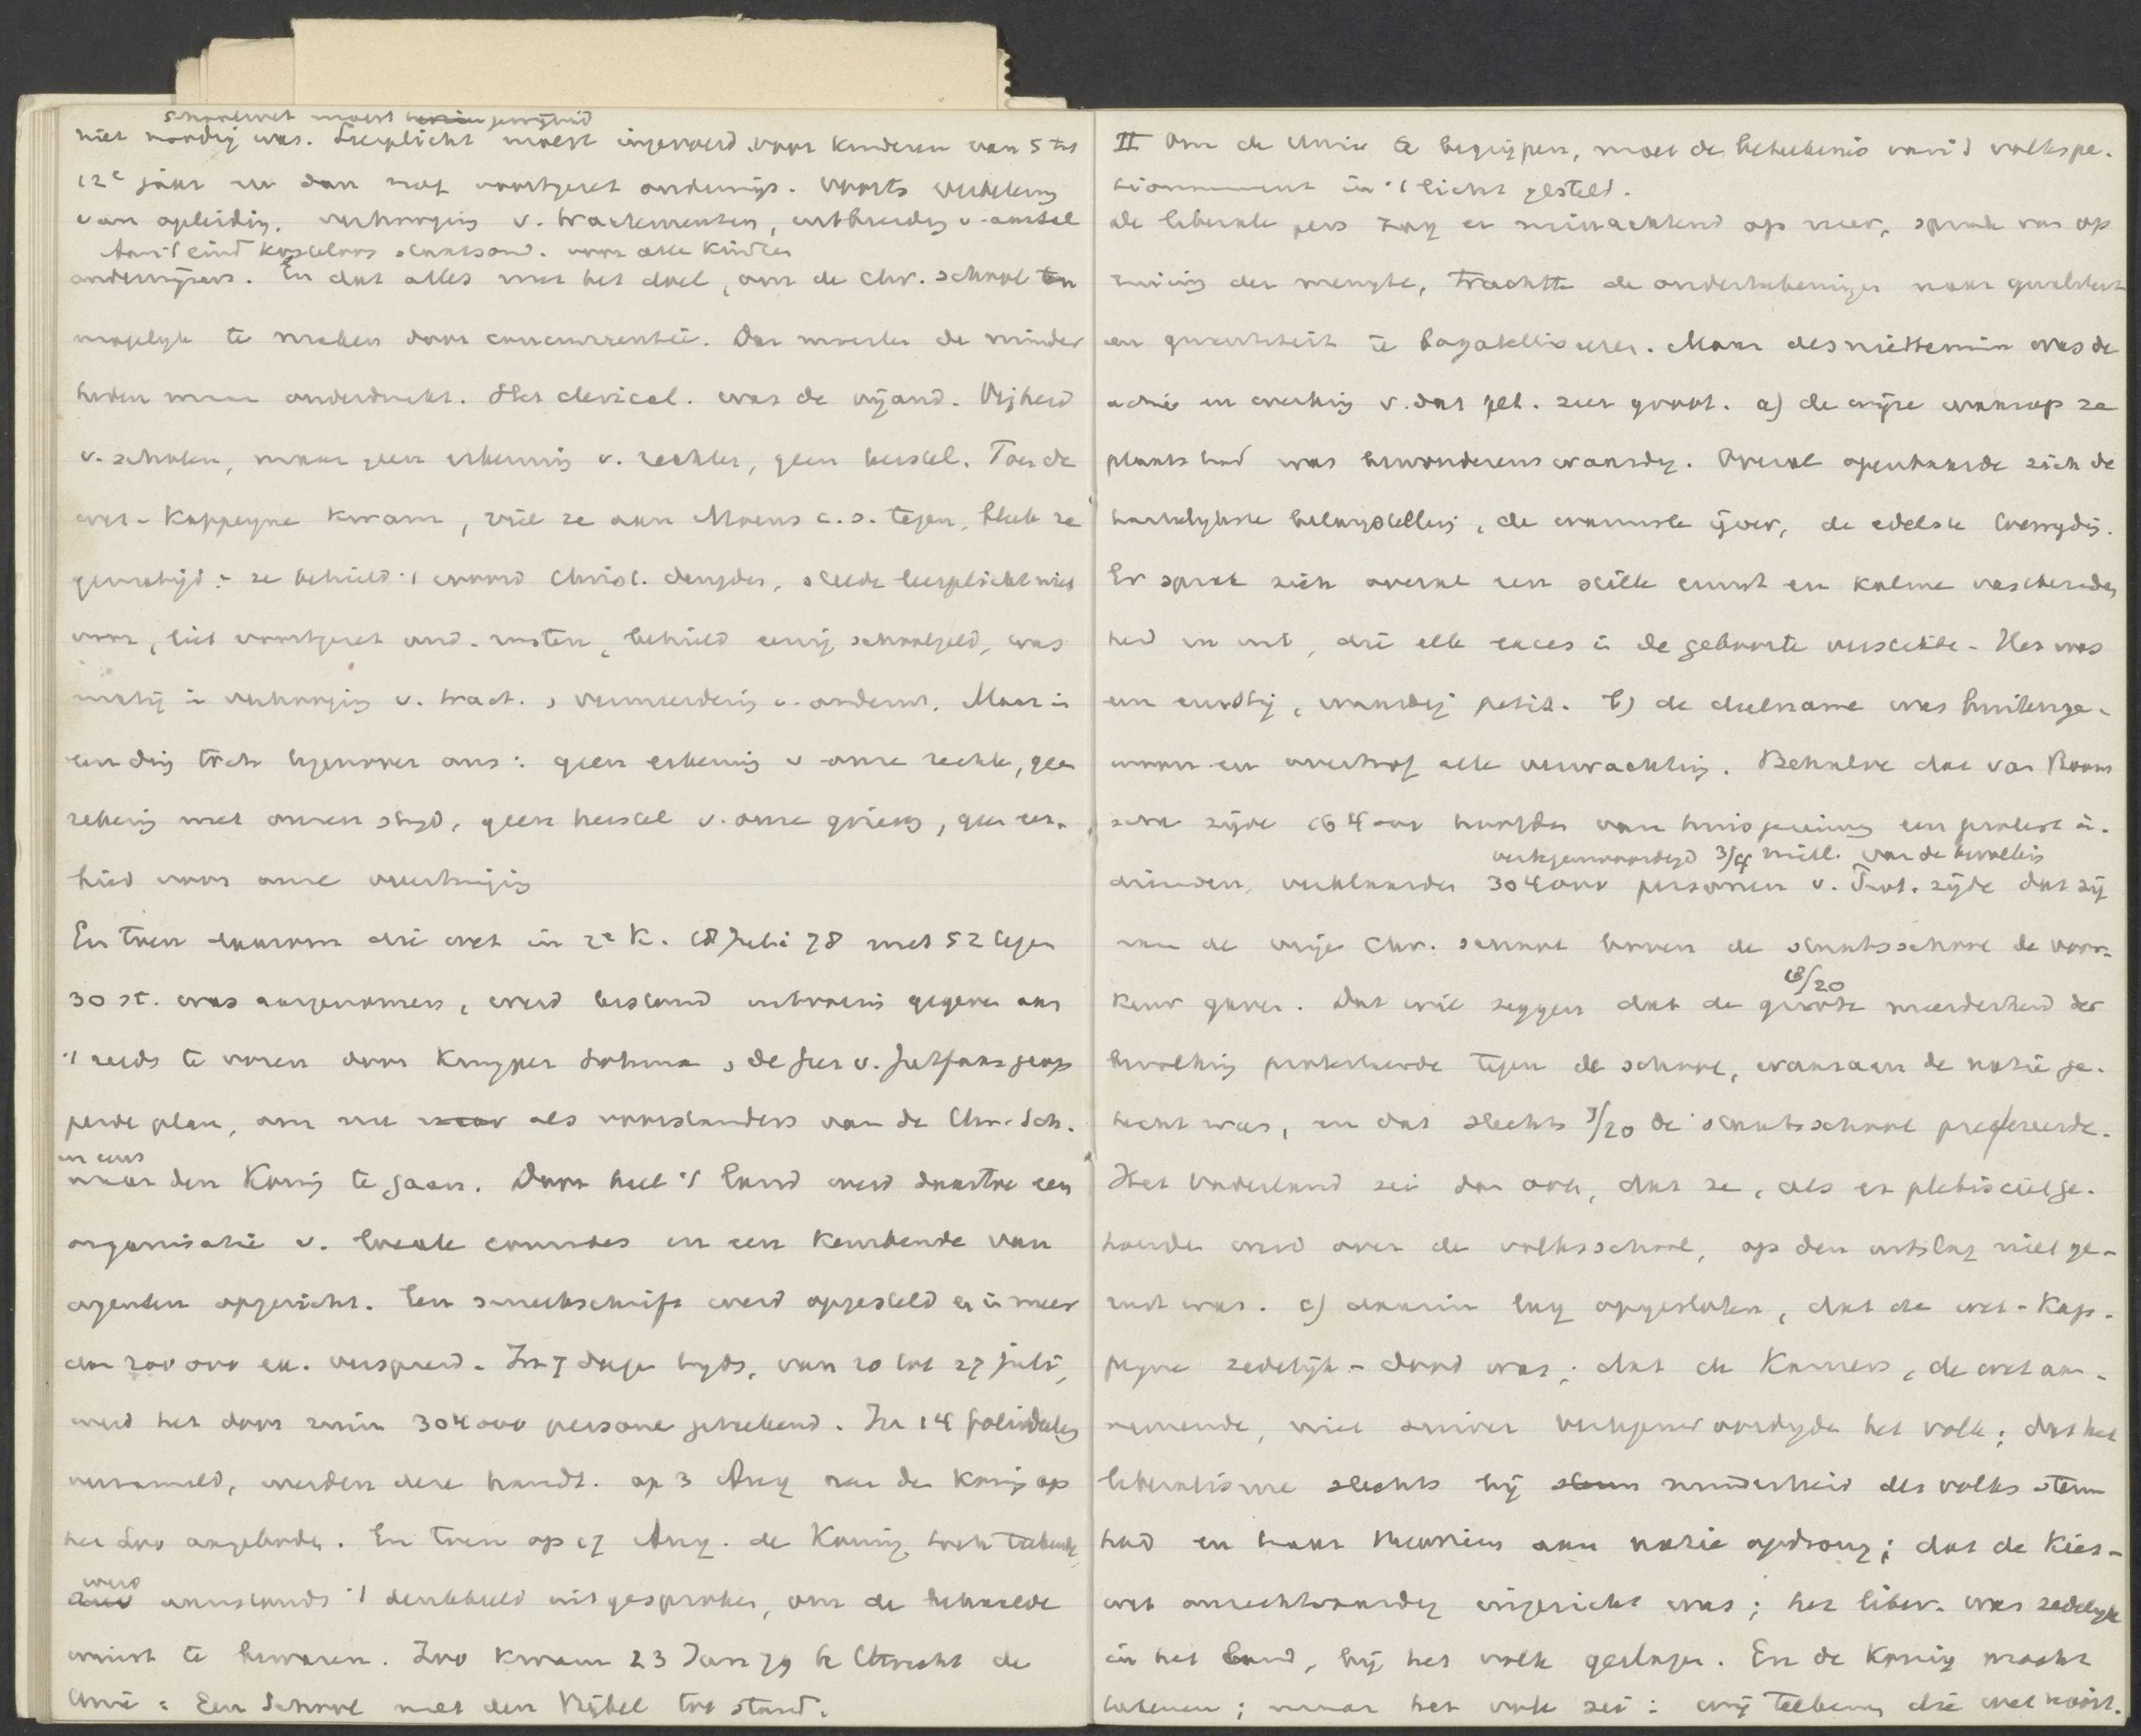 schoolwet moest gewijzigd
niet noodig was. Leerplicht moest ingevoerd voor kinderen van 5 tot
12e jaar en dan nog voortgezet onderwijs. Voorts verbetering
van opleiding, verhooging v. tractementen, uitbreiding v. aantal
Aan 't eind kosteloos staatsond. voor alle kinderen
onderwijzers. En dat alles met het doel, om de Chr. school on
mogelijk te maken door concurrentie. Dan moesten de minder
heden maar onderdrukt. Het clerical. was de vijand. Vrijheid
v. scholen, maar geen erkenning v. rechten, geen herstel. Toen de
wet-Kappeyne kwam, viel ze aan Moens c.s. tegen, bleek ze
gematigd: ze behield 't woord Christ. deugden, stelde leerplicht niet
voor, liet voortgezet ond. rusten, behield eenig schoolgeld, was
matig in verhooging v. tract., vermeerdering v. onderw. Maar in
een ding toch tegenover ons: geen erkenning v onze rechten, geen
rekening met onzen strijd, geen herstel v. onze grieven, geen eer-
bied voor onze overtuiging
En toen daarom die wet in 2e K. 18 Juli 78 met 52 tegen
30 st. was aangenomen, werd terstond uitvoering gegeven aan
't reeds te voren door Kuyper Lohman, de Geer v. Jutfaas geop
perde plan, om nu als voorstanders van de Chr. Sch.
en eens
naar den Koning te gaan. Door heel 't land werd daartoe een
organisatie v. locale comités en een keurbende van
agenten opgericht. Een smeekschrift werd opgesteld en in meer
dan 200 000 ex. verspreid. In 7 dagen tijds, van 20 tot 27 juli,
werd het door ruim 304 000 personen geteekend. In 14 foliodeelen
verzameld, werden deze handt. op 3 Aug aan den Koning op
het Loo aangeboden. En toen op 17 Aug. de Koning toch teekende,
werd
aanstonds 't denkbeeld uitgesproken, om de behaalde
winst te bewaren. Zoo kwam 23 Jan 79 te Utrecht de
Unie: Een School met den Bijbel tot stand.
II Om de Unie te begrijpen, moet de beteekenis van 't volkspe-
titionnement in 't licht gesteld.
de liberale pers zag er minachtend op neer, sprak van op
ruiing der menigte, trachtte de onderteekeningen naar qualiteit
en quantiteit te bagatelliseren. Maar desniettemin was de
actie en werking v. dat pet. zeer groot. a) de wijze waarop ze
plaats had was bewonderenswaardig. Overal openbaarde zich de
hartelijkste belangstelling, de warmste ijver, de edelste
Er sprak zich overal een stille ernst en kalme vastberaden
heid in uit, die elk exces in de geboorte verstikte. Het was
een ernstig, waardig petit. b) de deelname was buitenge-
woon en overtrof alle verwachting. Behalve dat van Room
sche zijde 164 000 hoofden van huisgezinnen een protest in-
vertegenwoordigd 3/4 mill. van de bevolking
dienden, verklaarden 304 000 personen v. Prot. zijde dat zij
aan de vrije Chr. school boven de staatsschool de voor-
13/20
keur gaven. Dat wil zeggen dat de groote meerderheid der
bevolking protesteerde tegen de school, waaraan de natie ge-
hecht was, en dat slechts 7/20 de staatsschool prefereerde.
Het Vaderland zei dan ook, dat ze, als er plebisciet ge-
houden werd over de volksschool, op den uitslag niet ge-
rust was. c) daarin lag opgesloten, dat de wet-Kap-
peyne zedelijk-dood was; dat de Kamers, de wet aan-
nemende, niet zuiver vertegenwoordigden het volk; dat het
liberalisme slechts bij minderheid des volks steun
had en haar theorieën aan natie opdrong; dat de Kies-
wet onrechtvaardig ingericht was; het liber. was zedelijk
in het land, bij het volk geslagen. En de Koning mocht
teekenen; maar het volk zei: wij teekenen die wet nooit.